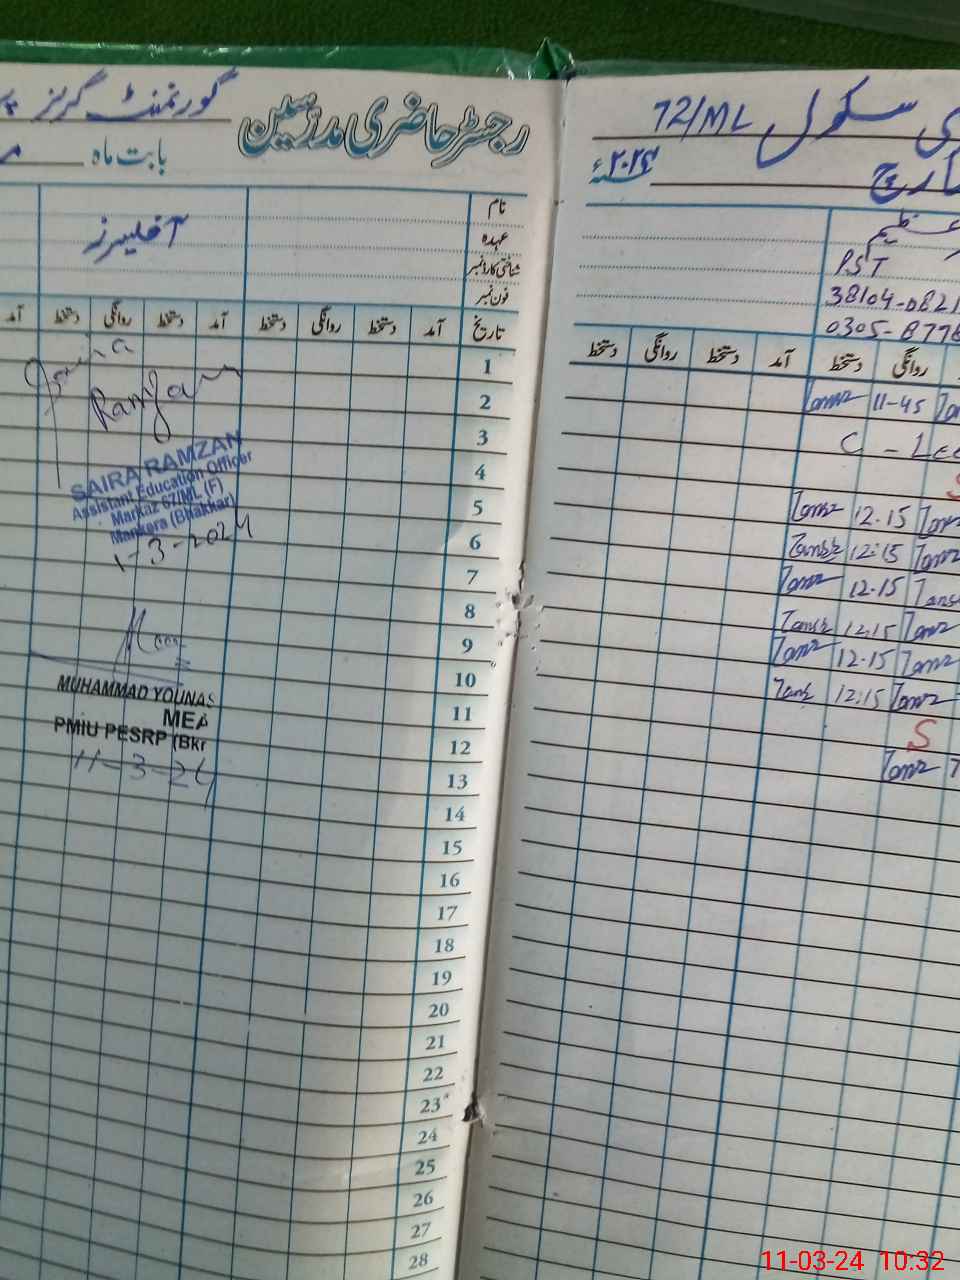 گورنمنٹ گرلز
رجسٹر حاضری مدرسین
ی سکول 72/ML
بابت ماہ
مارچ ۲۰۲۴ء
نام
عہدہ
شناختی کارڈ نمبر
فون نمبر
آفیسرز
عظیم
PST
38104-0821
0305-8778
تاریخ آمد دستخط روانگی دستخط آمد دستخط روانگی دستخط آمد
روانگی دستخط آمد دستخط روانگی دستخط
1
2
3
4
5
6
7
8
9
10
11
12
13
14
15
16
17
18
19
20
21
22
23
24
25
26
27
28
Ramzan
SAIRA RAMZAN
Assistant Education Officer
Markaz 67/ML (F)
Mankera (Bhakkar)
1-3-2024
MUHAMMAD YOUNAS
MEA
PMIU PESRP (Bkr
11-3-24
11-45
C - Lea
S
12.15
12:15
12.15
12.15
12.15
12:15
S
11-03-24 10:32